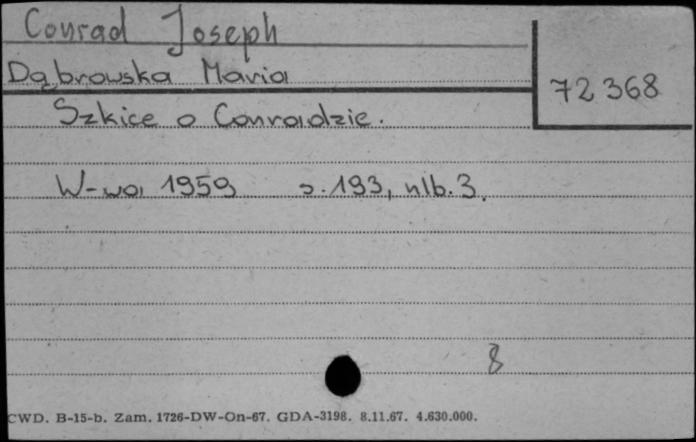 Conrad Joseph
Dąbrowska Maria
72 368
Szkice o Conradzie.
W-wa 1959 s. 193, nlb. 3.
8
CWD. B-15-b. Zam. 1726-DW-On-67. GDA-3198. 8.11.67. 4.630.000.